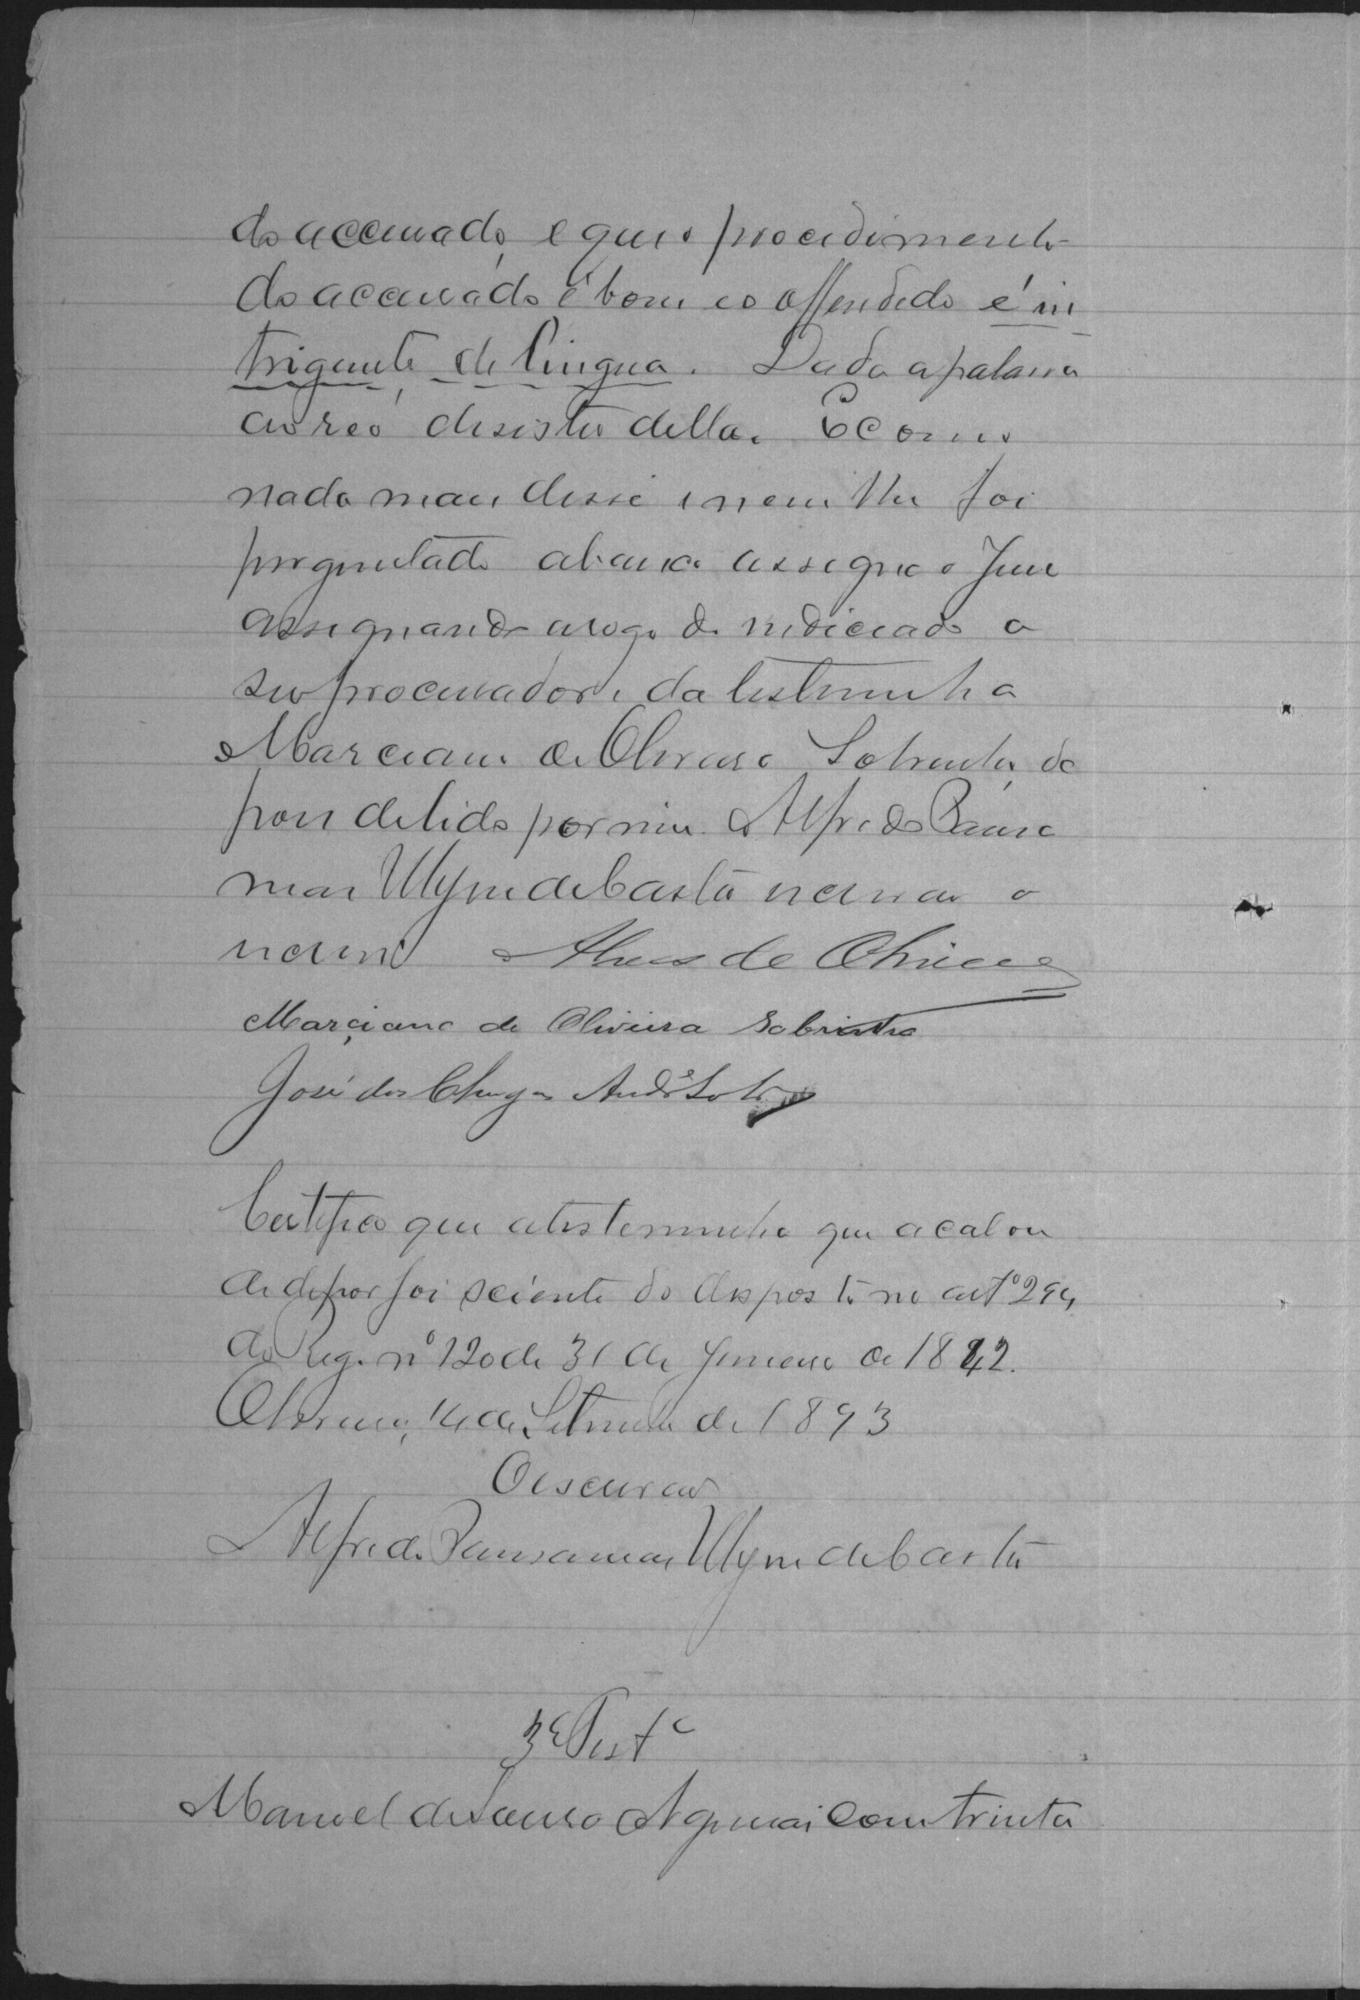 do accusado, e que o procedimento
do accusado é bom e o offendido é in
trigante de lingua. Dada a palavra
ao réo desistio della. E como
nada mais disse e nem lhe foi
perguntado abaixo assigna o Juiz
assignando a rogo do indiciado o
seu procurador e da testemunha
Marciano de Oliveira Sobrinho de
pois de lido por mim Alfredo
mar de Castro escrivão o
escrevi Alves de Oliveira
Marciano de Oliveira Sobrinho
José das Chagas Andr.e Sobr.o
Certifico que a testemunha que acabou
de depor foi sciente do disposto no art.º 294
do Reg. nº 120 de 31 de Janeiro de 1842.
Oliveira, 14 de Setembro de 1893
O escrivão
Alfredo de Castro
3ª Testª
Manoel de Souza com trinta